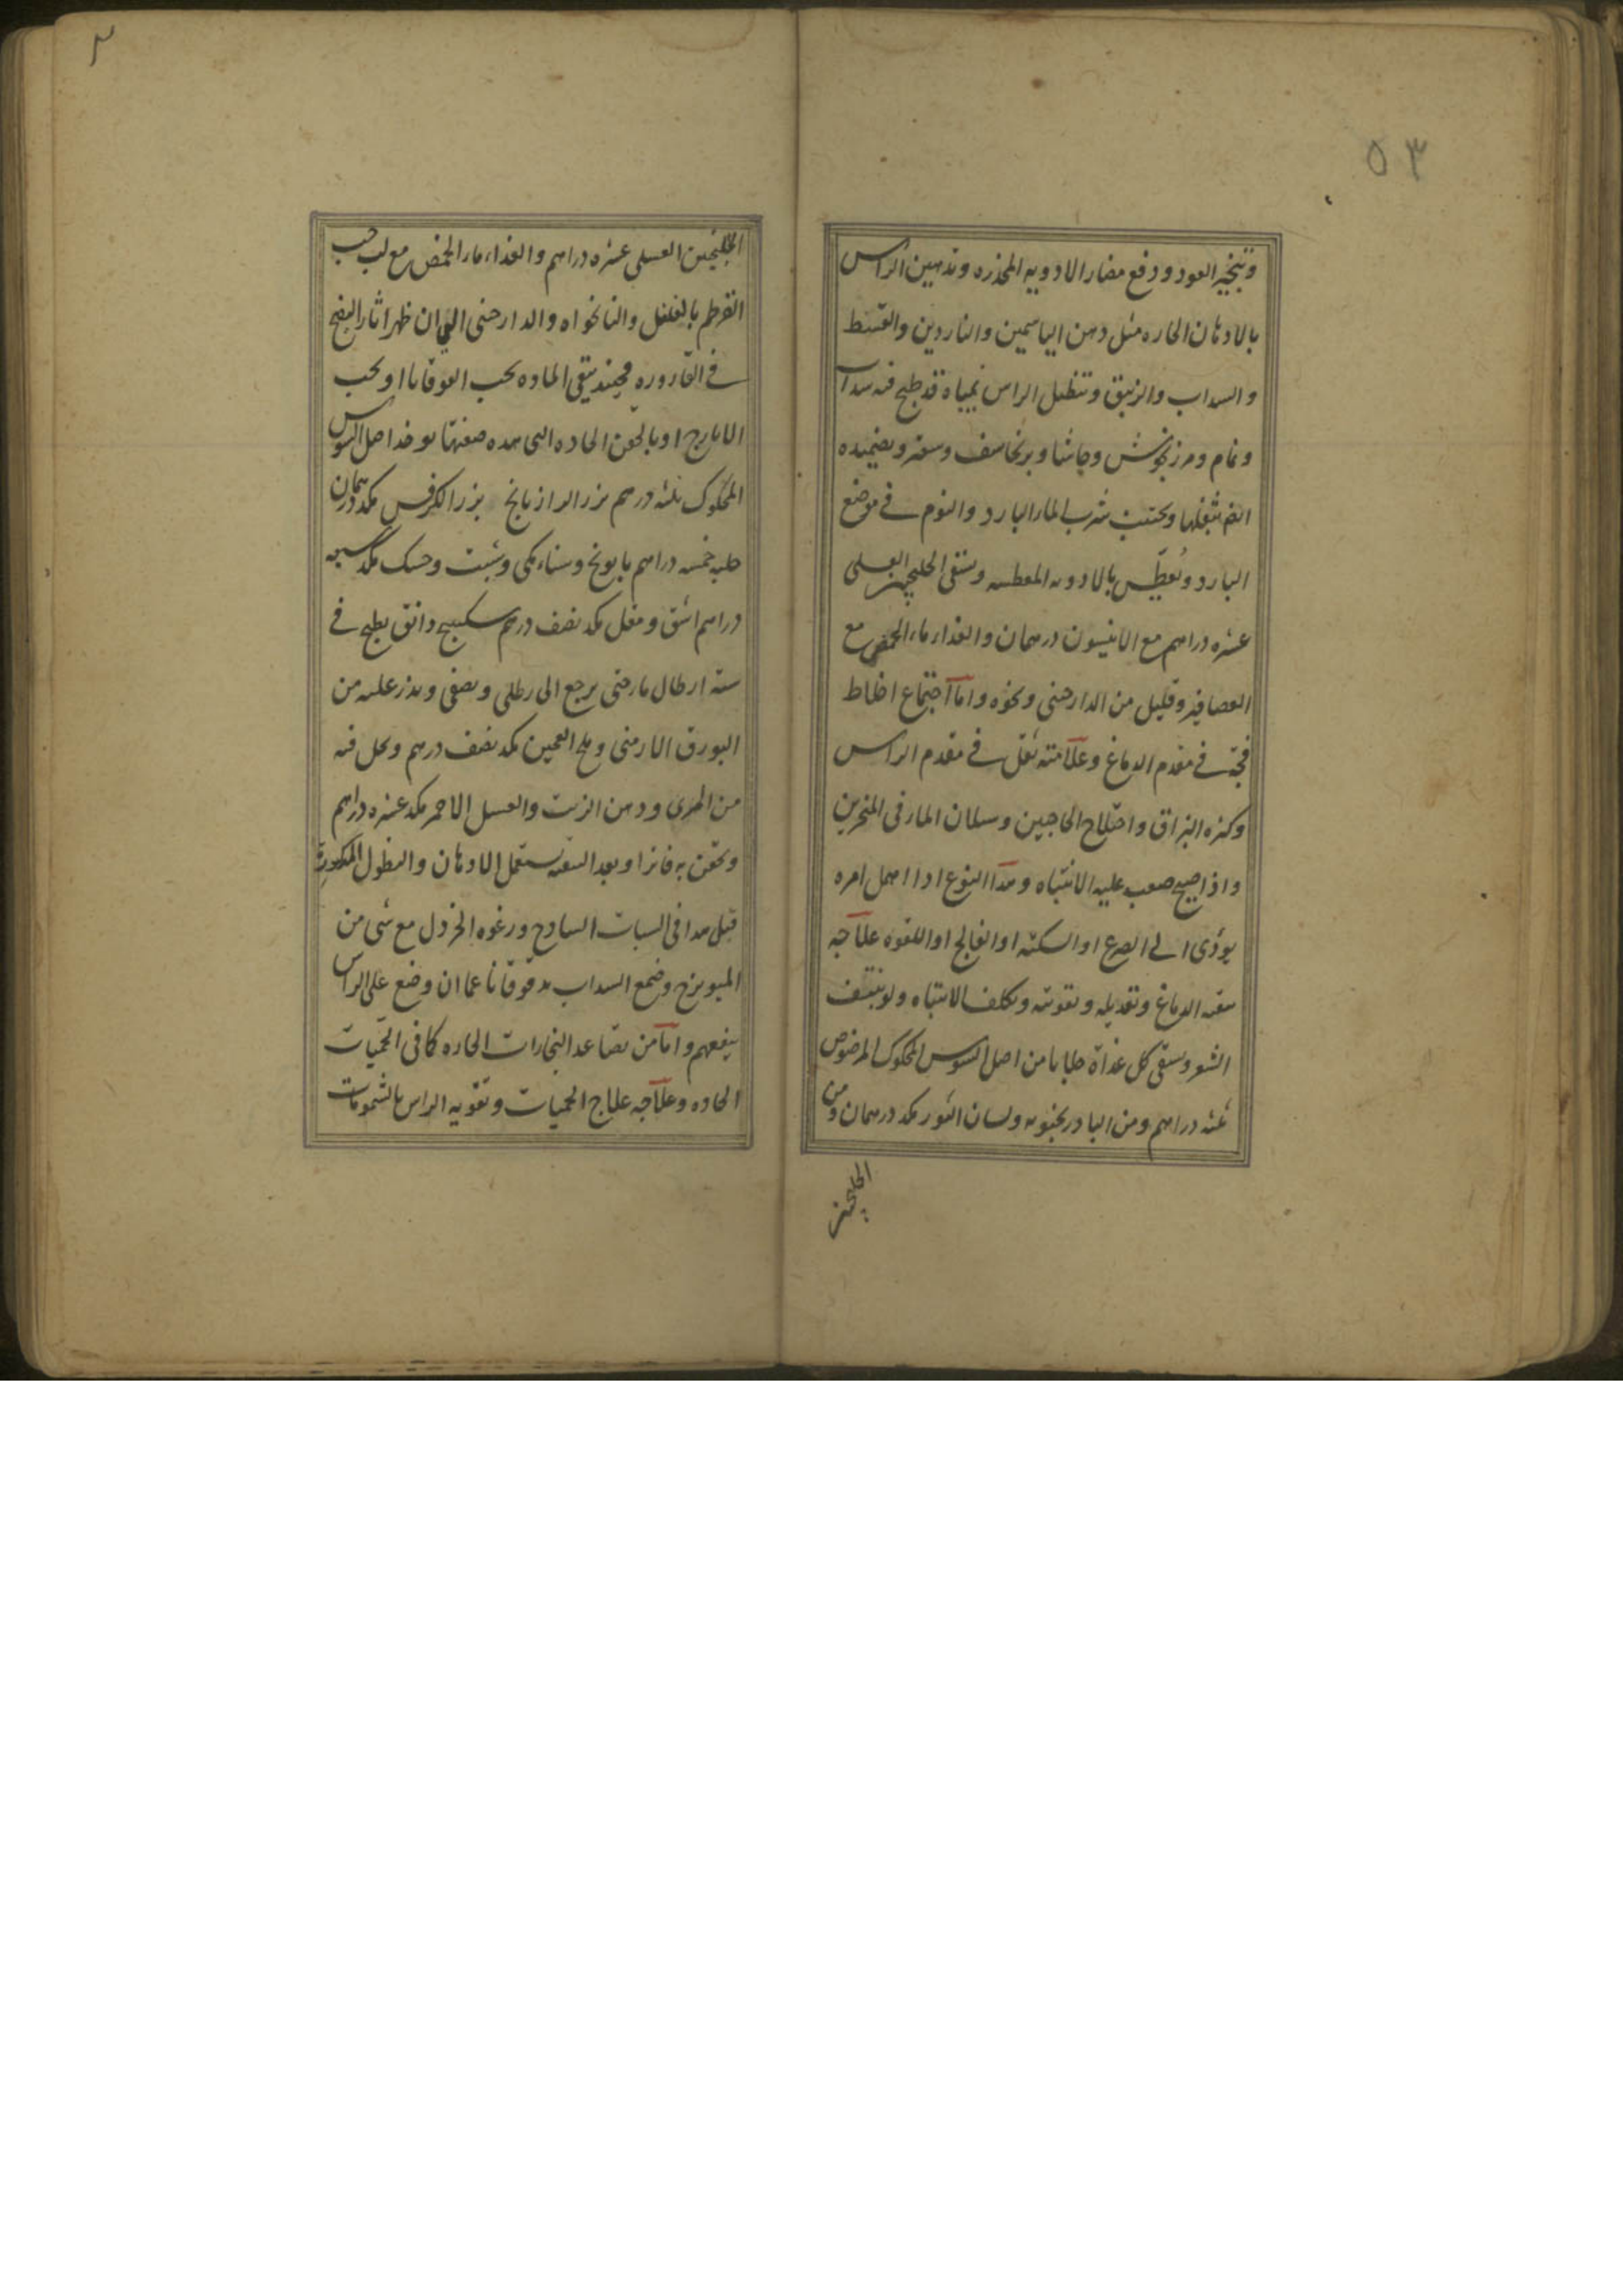 ٥٣
وتبخير العود ودفع مضار الادويه المخدره وتدهين الراس
بالادهان الحاره مثل دهن الياسمين والناردين والقسط
والسداب والزنبق وتنطيل الراس بمياه قد طبخ فيه سداب
ونمام ومرزنجوش وحاشا وبرنجاسف وسعتر وتضميده
ايضا بثفلها ويجتنب شرب الماء البارد والنوم في موضع
البارد ويُعطّس بالادويه المعطسه ويسقى الجلنجبين العسلى
عشره دراهم مع الانيسون درهمان والغداء ماء الحمص مع
العصافير وقليل من الدارصينى ونحوه واما اجتماع اخلاط
فجة في مقدم الدماغ وعلامته ثقل في مقدم الراس
وكثره البزاق واختلاج الحاجبين وسيلان الماء فى المنخرين
واذا اصبح صعب عليه الانتباه وهذا النوع اذا اهمل امره
يودى الى الصرع او السكته او الفالج او اللقوه علاجه
تنقيه الدماغ وتعديله وتقويته ويكلف الانتباه ولو بنتف
الشعر ويسقى كل غداة جلابا من اصل السوس المحكوك المرضوض
ثلثه دراهم ومن البادرنجبويه ولسان الثور مكد درهمان ومن
الجلنجبين
الجلنجبين العسلى عشره دراهم والغداء ماء الحمص مع لب حب
القرطم بالفلفل والنانخواه والدارصينى الى ان ظهر اثار النضج
في القاروره فحينئذ ينقى الماده بحب القوقايا او بحب
الايارج او بالحقن الحاده التى هذه صفتها يوخذ اصل السوس
المحكوك ثلثه درهم بزر الرازيانج بزر الكرفس مكد درهمان
حلبه خمسه دراهم بابونج وسناء مكى وشبت وحسك مكد سبعه
دراهم اشق ومقل مكد نصف درهم سكبينج دانق يطبخ في
سته ارطال ماء حتى يرجع الى رطلى ويصفى ويذر عليه من
البورق الارمنى وملح العجين مكد نصف درهم ويحل فيه
من المرى ودهن الزيت والعسل الاحمر مكد عشره دراهم
ويحقن به فاترا وبعد التنقيه يستعمل الادهان والنطول المذكورة
قبل هذا فى السبات الساذج ورغوه الخردل مع شى من
الميويزج وضمغ السداب مدقوقا ناعما ان وضع على الراس
ينفعهم واما من تصاعد البخارات الحاره كما فى الحميات
الحاده وعلاجه علاج الحميات وتقويه الراس بالشمومات